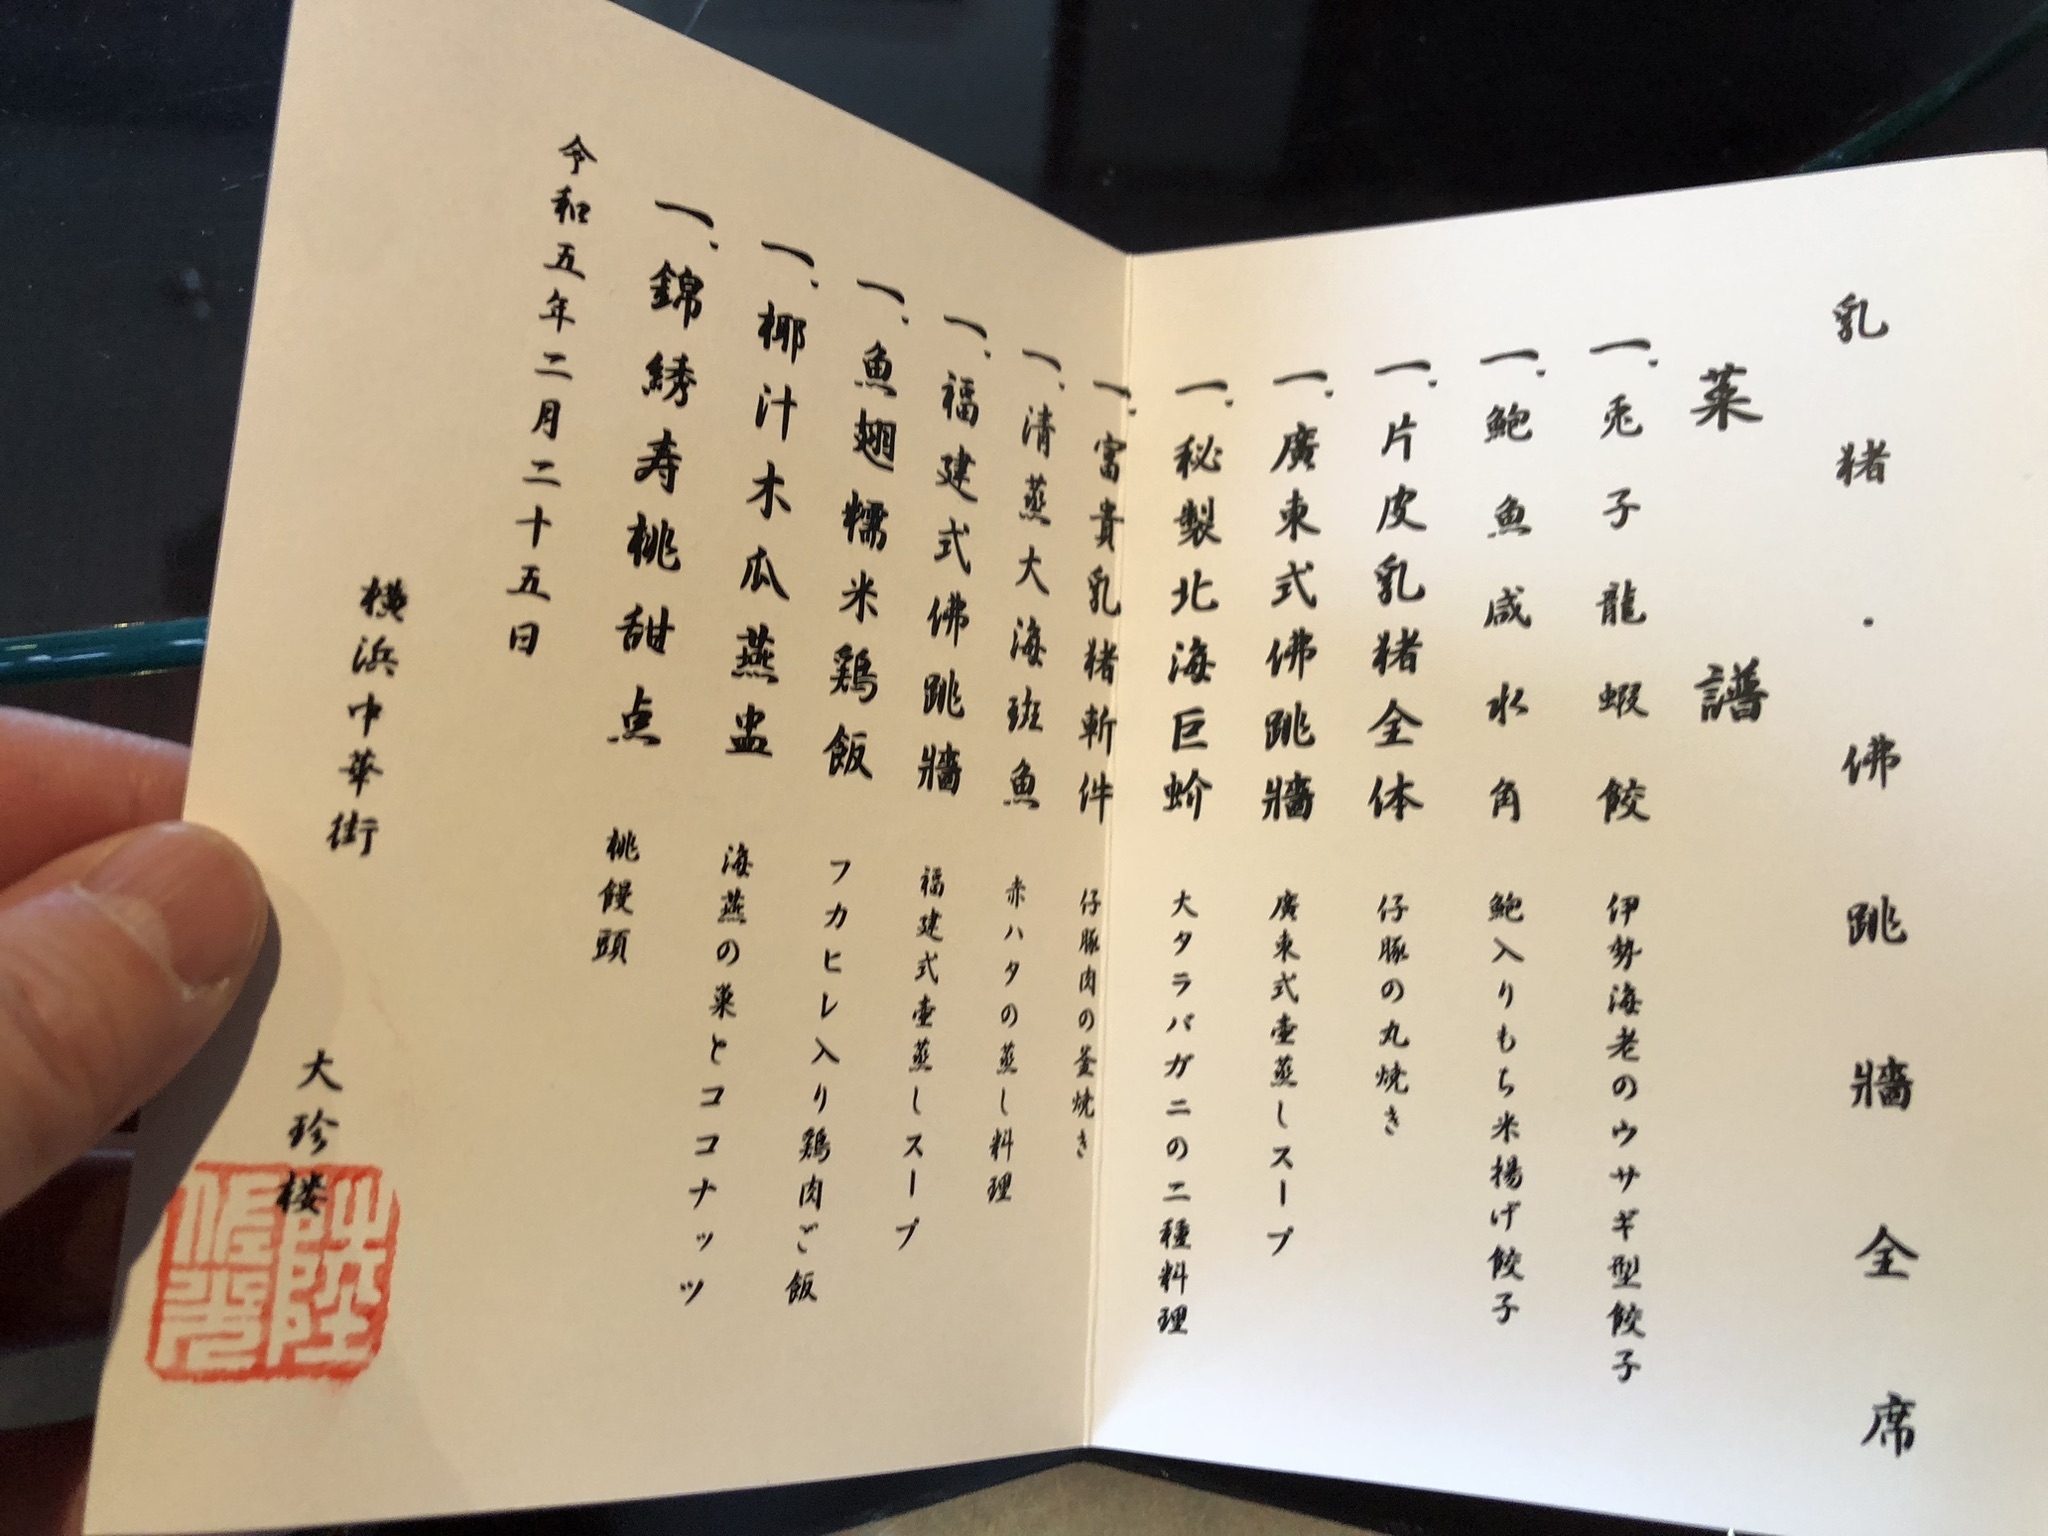 乳猪・佛跳牆全席
菜譜
一、兎子龍蝦餃 伊勢海老のウサギ型餃子
一、鮑魚咸水角 鮑入りもち米揚げ餃子
一、片皮乳猪全体 仔豚の丸焼き
一、廣東式佛跳牆 廣東式壷蒸しスープ
一、秘製北海巨蚧 大タラバガニの二種料理
一、富貴乳猪斬件 仔豚肉の釜焼き
一、清蒸大海斑魚 赤ハタの蒸し料理
一、福建式佛跳牆 福建式壷蒸しスープ
一、魚翅糯米鶏飯 フカヒレ入り鶏肉ご飯
一、椰汁木瓜燕盅 海燕の巣とココナッツ
一、錦綉寿桃甜点 桃饅頭
令和五年二月二十五日
横浜中華街 大珍楼